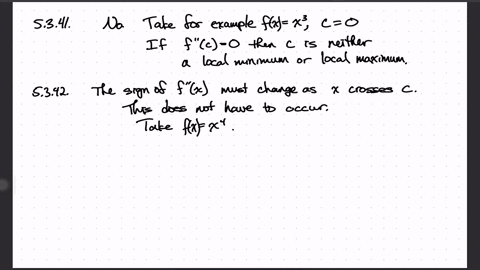 5.3.41. No Take for example f(x)=x³, c=0
If f''(c)=0 then c is neither
a local minimum or local maximum.
5.3.42. The sign of f''(x) must change as x crosses c.
This does not have to occur.
Take f(x)=x⁴.